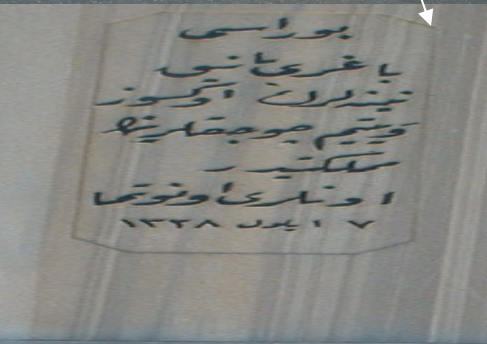 بوراسی
باغری یانیق
نینه‌لرك اوكسوز
ویتیم چوجقلرینك
مملكتیدر
اونلری اونوتما
٧ ایلول ١٣٣٨